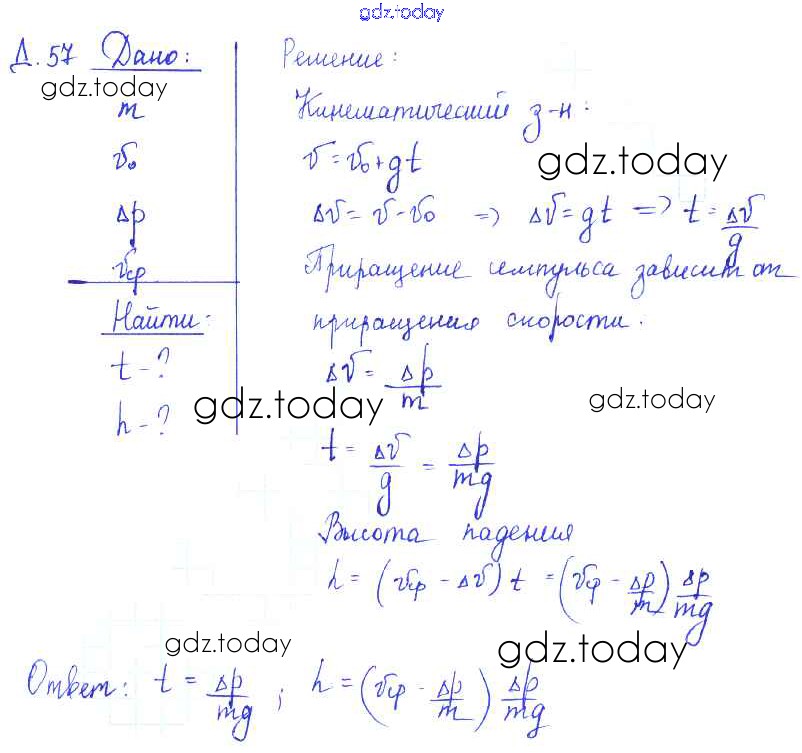 gdz.today
Д. 57 Дано:
gdz.today
m
v₀
Δp
vср
Найти:
t - ?
h - ?
Решение:
Кинематический з-н:
v = v₀ + gt
gdz.today
Δv = v - v₀ => Δv = gt => t = Δv/g
Приращение импульса зависит от
приращения скорости.
Δv = Δp/m
gdz.today
gdz.today
t = Δv/g = Δp/mg
Высота падения
h = (vср - Δv) t = (vср - Δp/m) Δp/mg
gdz.today
gdz.today
Ответ: t = Δp/mg ; h = (vср - Δp/m) Δp/mg